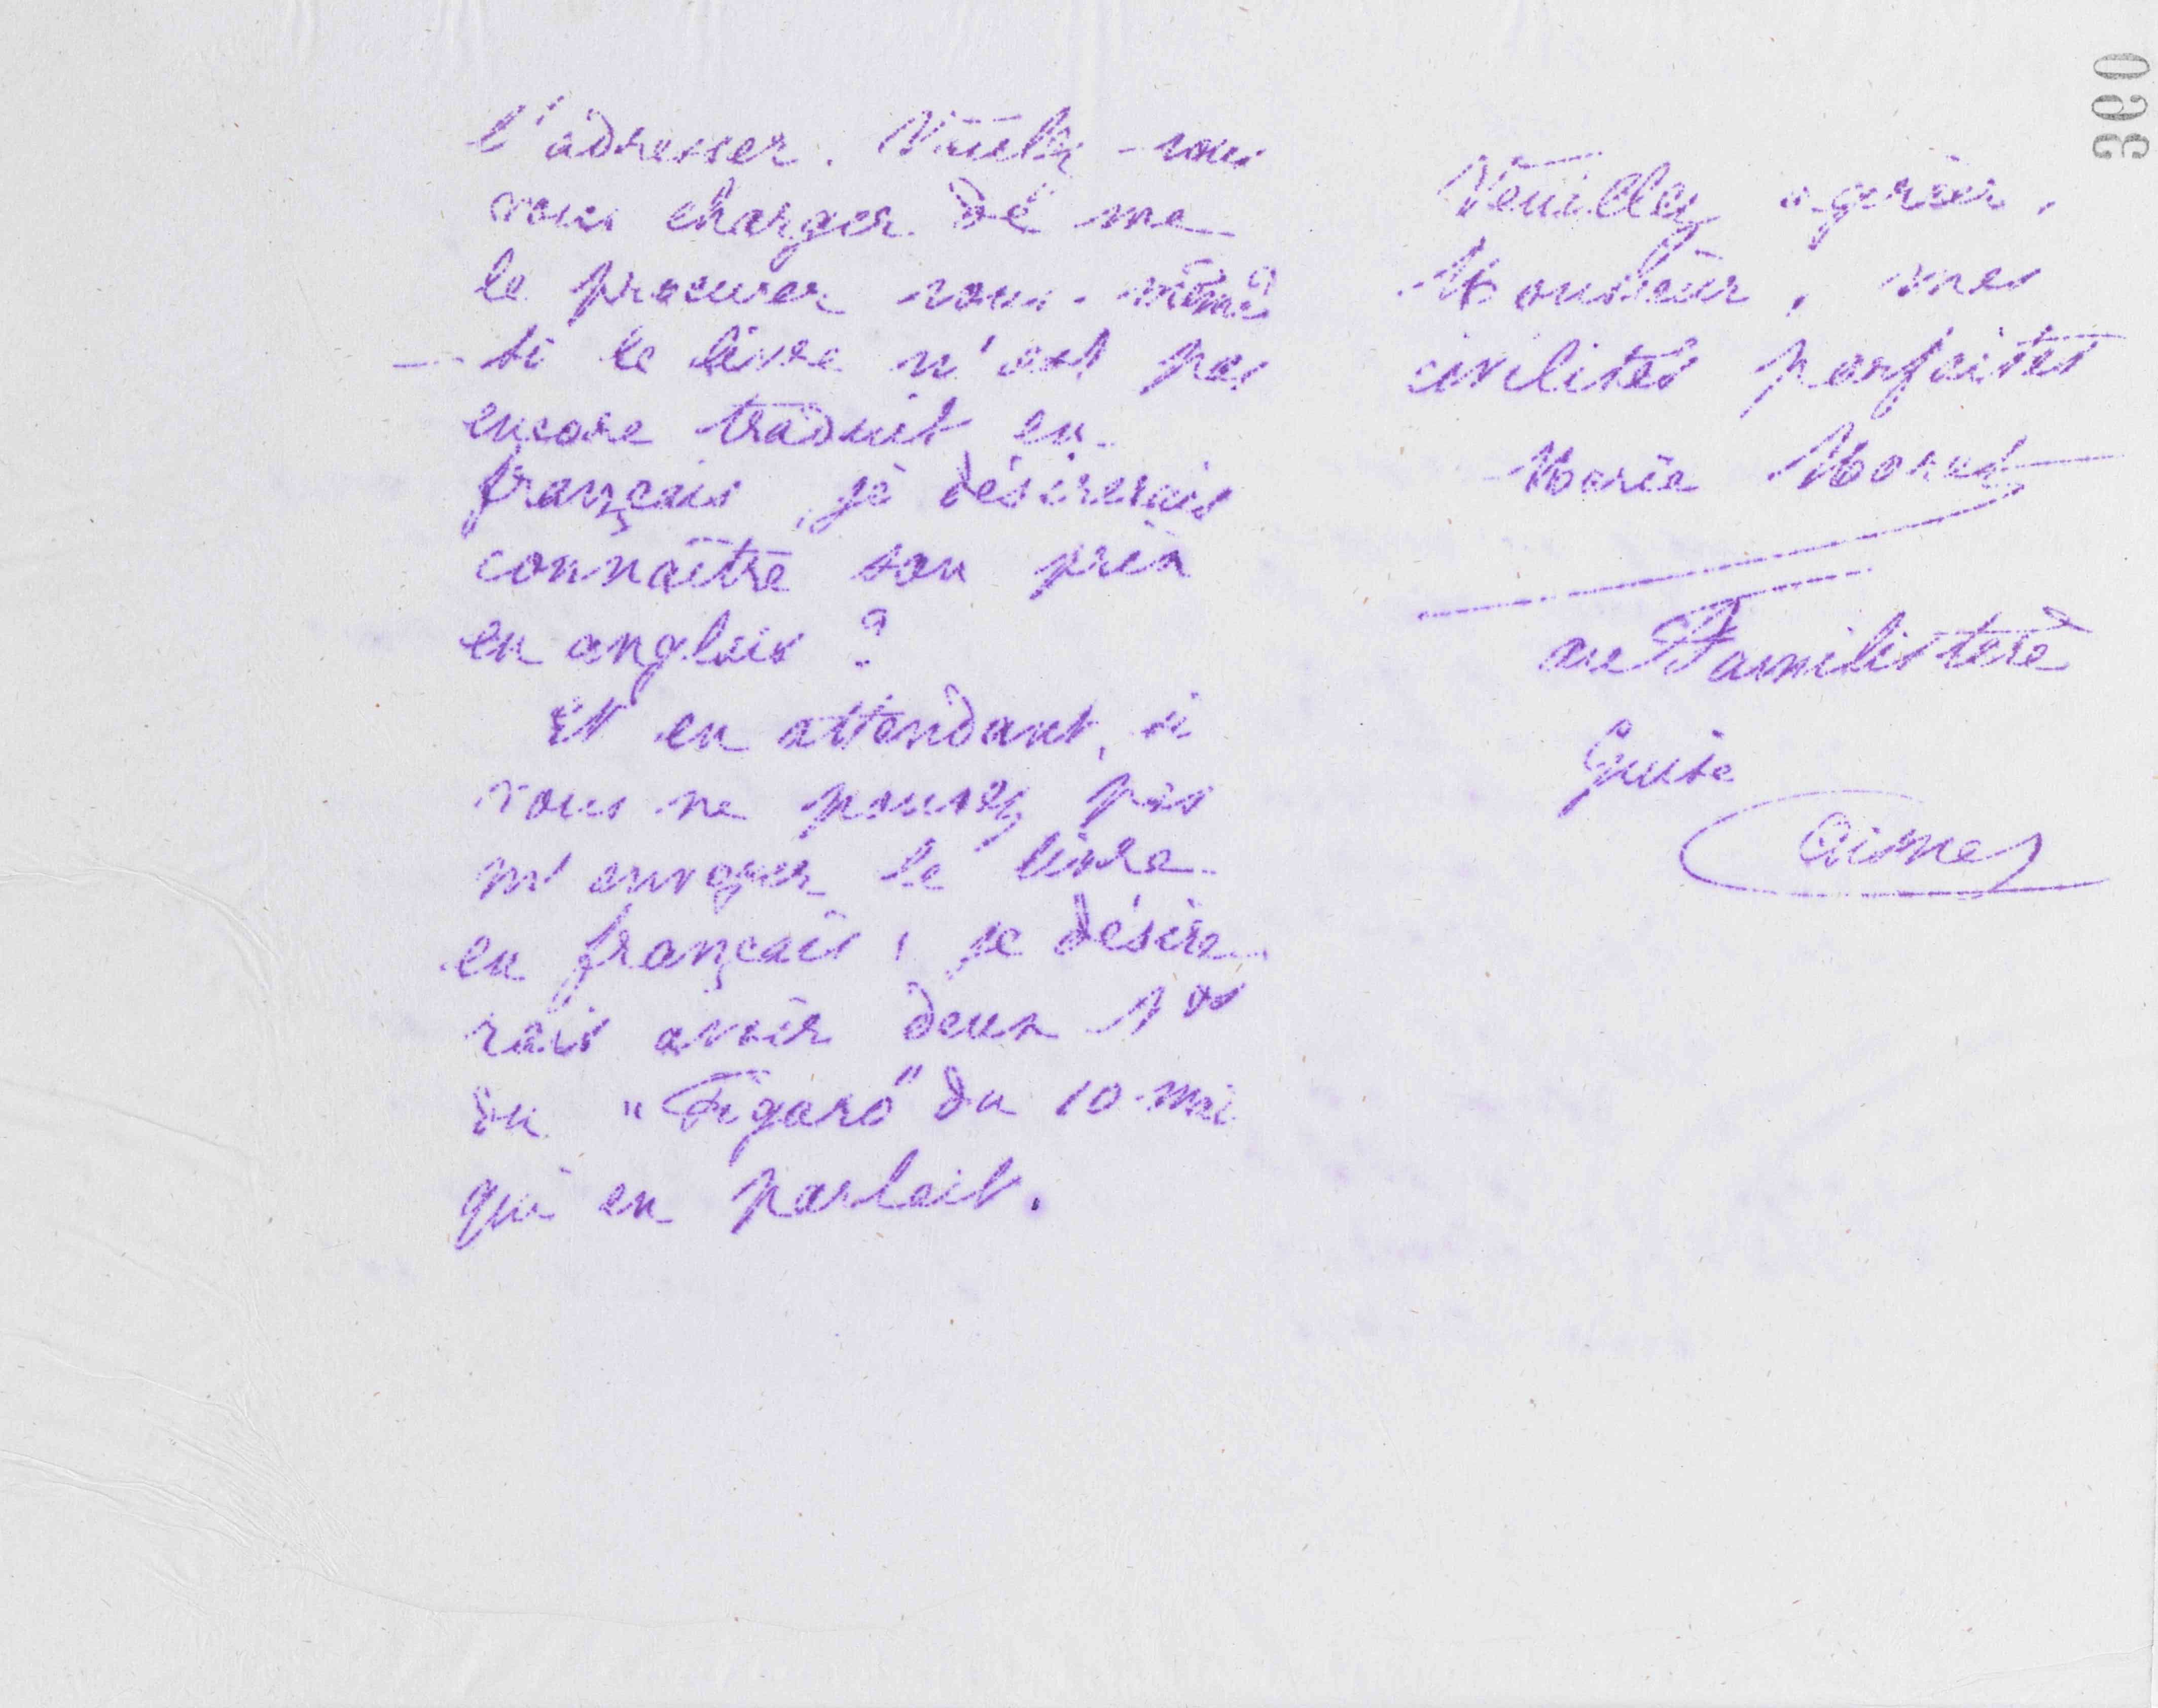 l'adresser. Voulez-vous
vous charger de me
le procurer vous-même ?
— Si le livre n'est pas
encore traduit en
français, je désirerais
connaître son prix
en anglais ?
Et en attendant, si
vous ne pouvez pas
m'envoyer le livre
en français, je désire
rais avoir deux Nos
du "Figaro" du 10 mai
qui en parlait.
Veuillez agréer,
Monsieur, mes
civilités parfaites
Marie Moret
au Familistère
Guise
Aisne
360